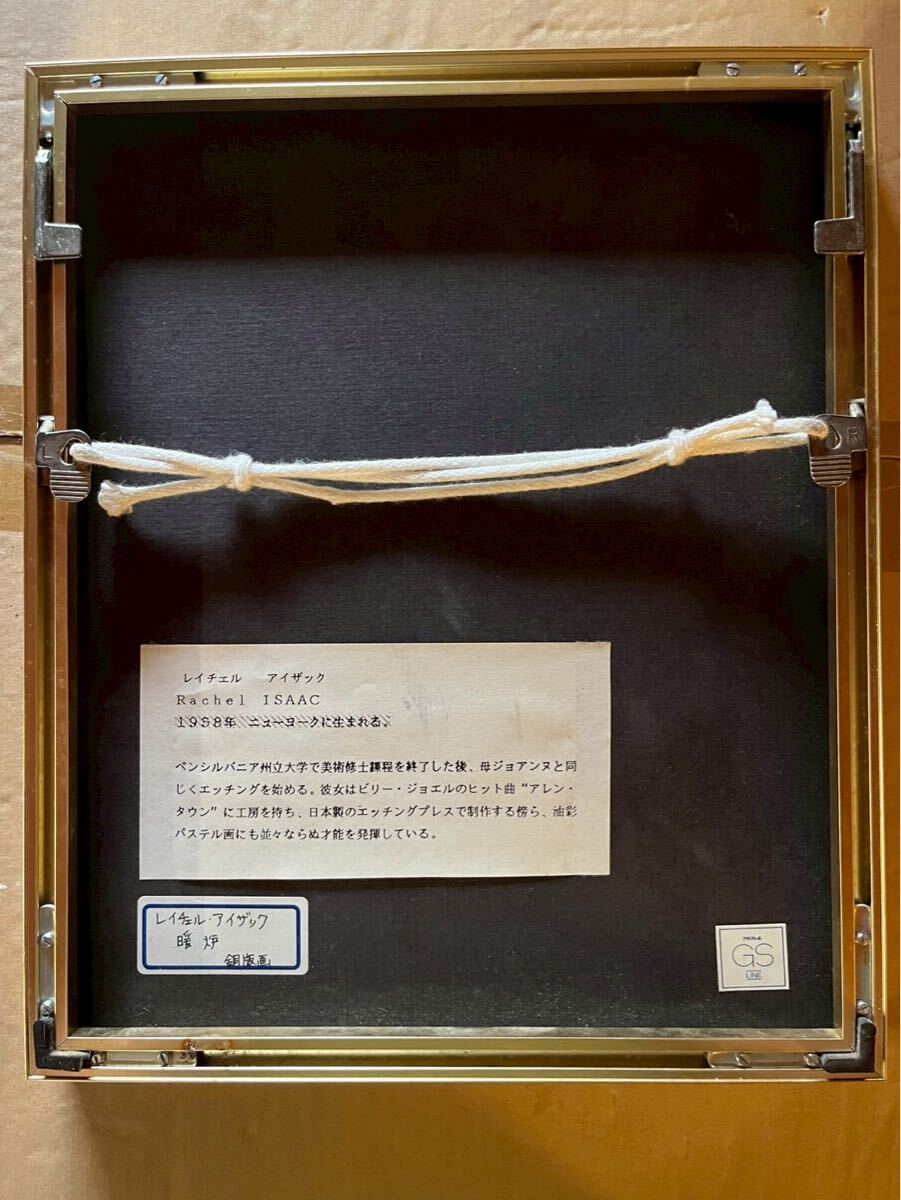 L
R
レイチェル アイザック
Rachel ISAAC
1958年 ニューヨークに生まれる。
ペンシルバニア州立大学で美術修士課程を終了した後、母ジョアンヌと同
じくエッチングを始める。彼女はビリー・ジョエルのヒット曲“アレン・
タウン”に工房を持ち、日本製のエッチングプレスで制作する傍ら、油彩
パステル画にも並々ならぬ才能を発揮している。
レイチェル・アイザック
暖炉
銅版画
GS
LINE